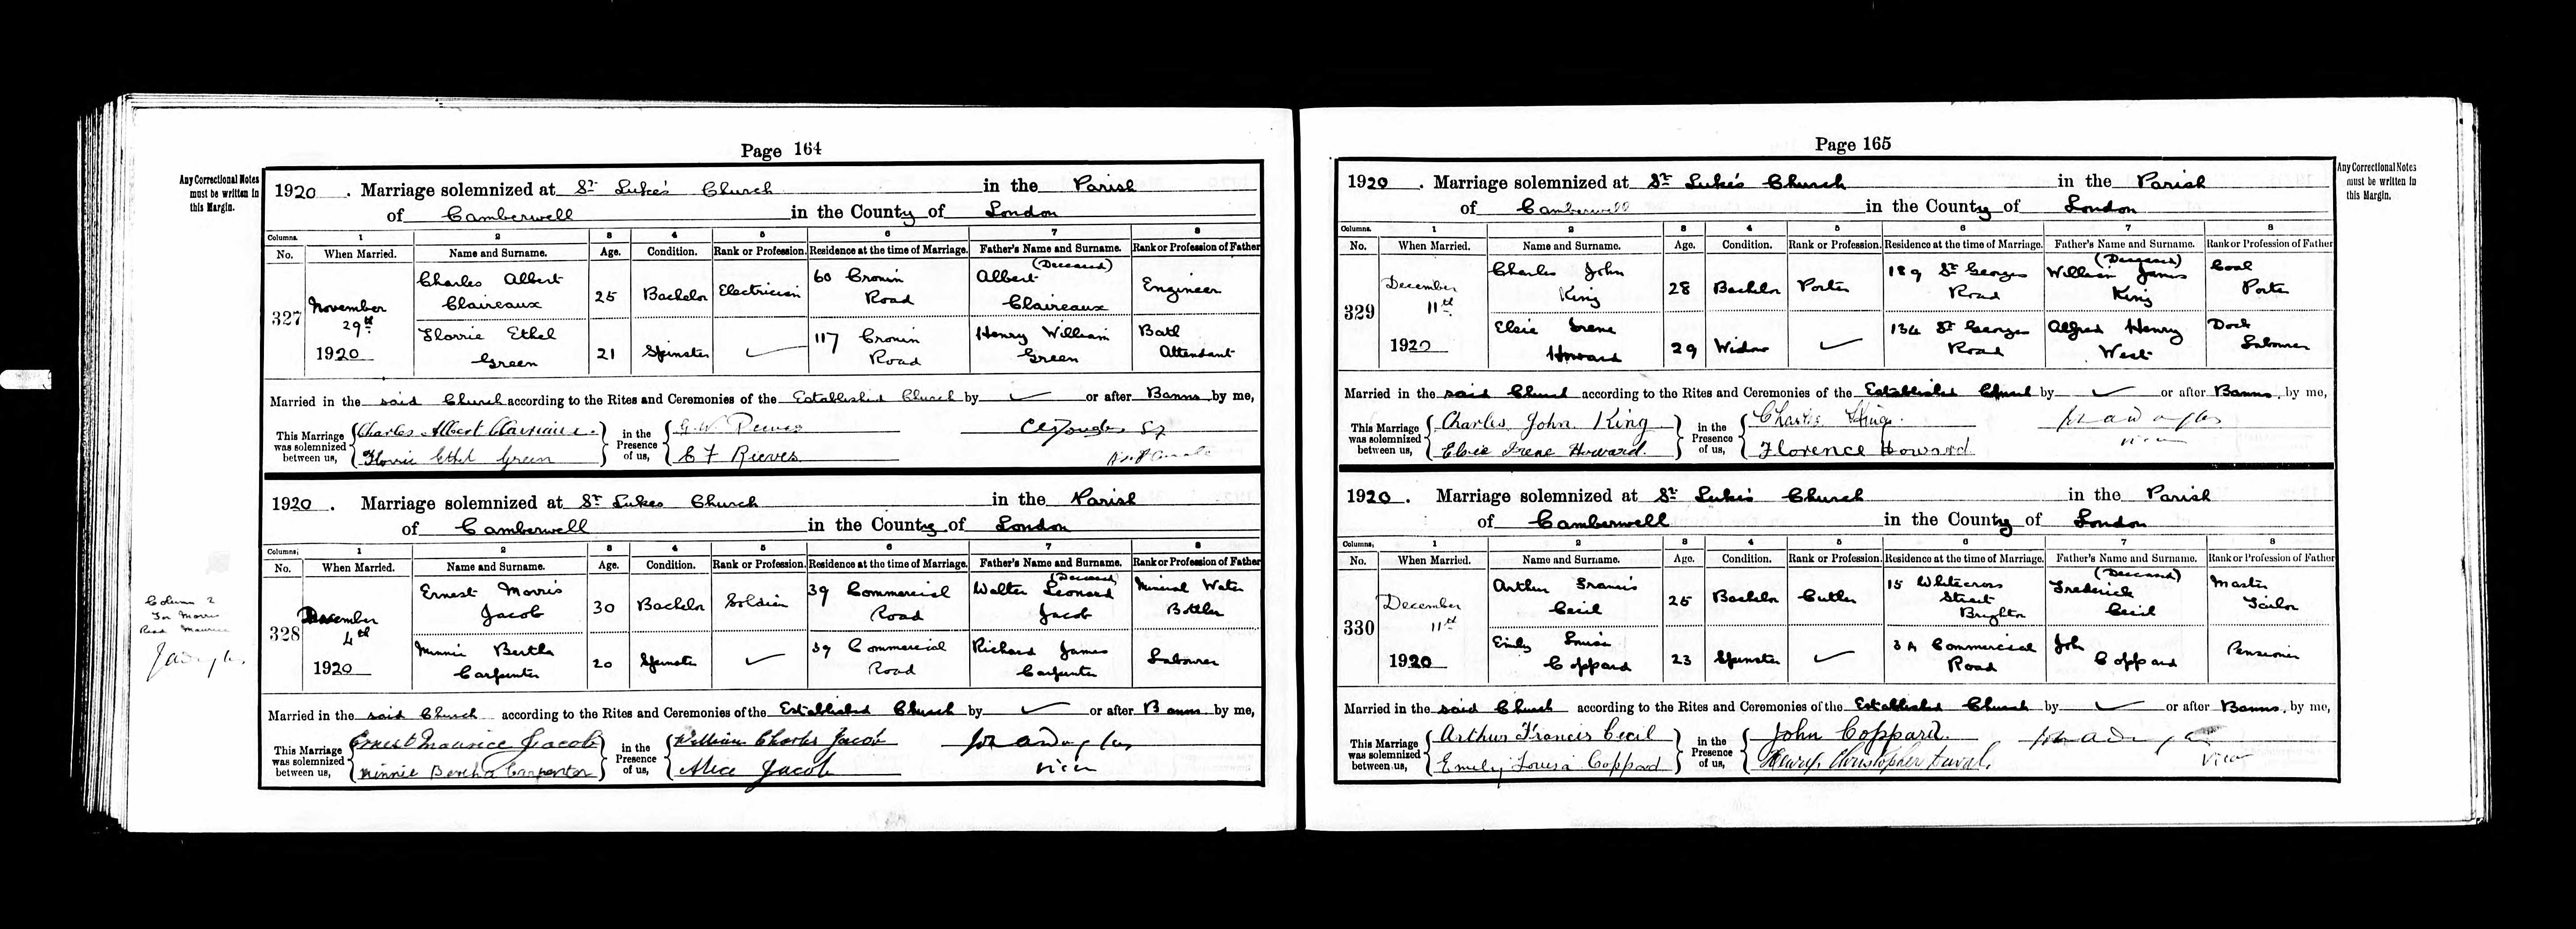 Page 164
Any Correctional Notes
must be written in
this Margin.
1920. Marriage solemnized at St. Luke's Church in the Parish
of Camberwell in the County of London
Columns. 1 2 3 4 5 6 7 8
No. When Married. Name and Surname. Age. Condition. Rank or Profession. Residence at the time of Marriage. Father's Name and Surname. Rank or Profession of Father
327 November 29th 1920
Charles Albert Claireaux 25 Bachelor Electrician 60 Cronin Road Albert Claireaux (Deceased) Engineer
Florrie Ethel Green 21 Spinster 117 Cronin Road Henry William Green Bath Attendant
Married in the said Church according to the Rites and Ceremonies of the Established Church by or after Banns by me,
This Marriage was solemnized between us, Charles Albert Claireaux. Florrie Ethel Green in the Presence of us, G. W. Reeves E F Reeves
1920. Marriage solemnized at St. Lukes Church in the Parish
of Camberwell in the County of London
Columns, 1 2 3 4 5 6 7 8
No. When Married. Name and Surname. Age. Condition. Rank or Profession. Residence at the time of Marriage. Father's Name and Surname. Rank or Profession of Father
Column 2
For Morris
Read Maurice
328 December 4th 1920
Ernest Morris Jacob 30 Bachelor Soldier 39 Commercial Road Walter Leonard Jacob (Deceased) Mineral Water Bottler
Minnie Bertha Carpenter 20 Spinster 39 Commercial Road Richard James Carpenter Labourer
Married in the said Church according to the Rites and Ceremonies of the Established Church by or after Banns by me,
This Marriage was solemnized between us, Ernest Maurice Jacob Minnie Bertha Carpenter in the Presence of us, William Charles Jacob Alice Jacob
Vicar
Page 165
Any Correctional Notes
must be written in
this Margin.
1920. Marriage solemnized at St. Luke's Church in the Parish
of Camberwell in the County of London
Columns. 1 2 3 4 5 6 7 8
No. When Married. Name and Surname. Age. Condition. Rank or Profession. Residence at the time of Marriage. Father's Name and Surname. Rank or Profession of Father
329 December 11th 1920
Charles John King 28 Bachelor Porter 189 St Georges Road William James King (Deceased) Coal Porter
Elsie Irene Howard 29 Widow 134 St Georges Road Alfred Henry West Dock Labourer
Married in the said Church according to the Rites and Ceremonies of the Established Church by or after Banns, by me,
This Marriage was solemnized between us, Charles John King Elsie Irene Howard. in the Presence of us, Charles King. Florence Howard
Vicar
1920. Marriage solemnized at St. Luke's Church in the Parish
of Camberwell in the County of London
Columns, 1 2 3 4 5 6 7 8
No. When Married. Name and Surname. Age. Condition. Rank or Profession. Residence at the time of Marriage. Father's Name and Surname. Rank or Profession of Father
330 December 11th 1920
Arthur Francis Cecil 25 Bachelor Cutler 15 Whitecross Street Brighton Frederick Cecil (Deceased) Master Tailor
Emily Louisa Coppard 23 Spinster Commercial Road John Coppard Pensioner
Married in the said Church according to the Rites and Ceremonies of the Established Church by or after Banns, by me,
This Marriage was solemnized between us, Arthur Francis Cecil Emily Louisa Coppard in the Presence of us, John Coppard. Christopher
Vicar